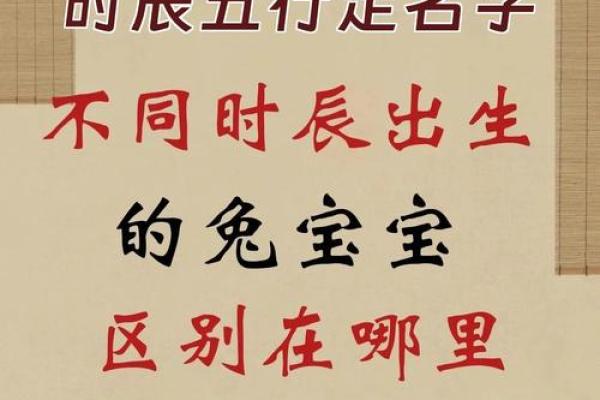 时辰五行定名字
不同时辰出生
的兔宝宝
区别在哪里